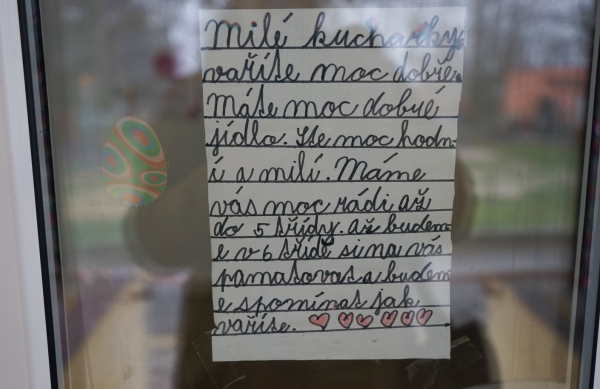 Milé kuchařky
vaříte moc dobře.
Máte moc dobré
jídlo. Ste moc hodn-
í a milí. Máme
vás moc rádi až
do 5 třídy. až budem
e v 6 třídě si na vás
pamatovat a budem
e spomínat jak
vaříte.